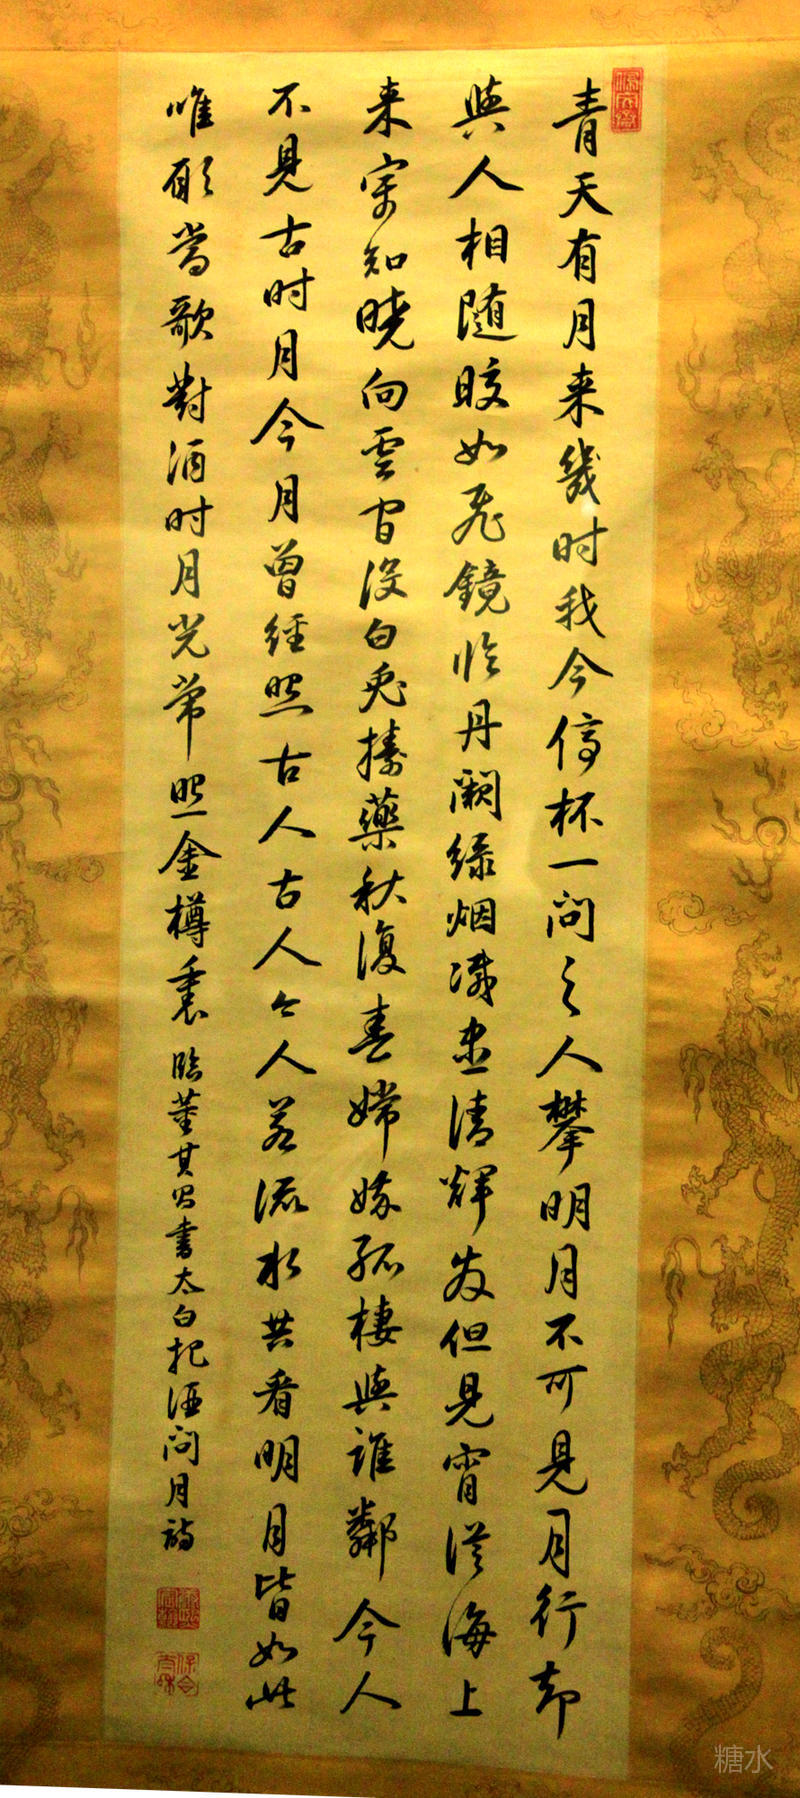 淵鑒齋
青天有月来幾时我今停杯一问之人攀明月不可見月行却
與人相随皎如飛鏡臨丹闕緑烟滅盡清輝發但見宵從海上
来寧知曉向雲間没白兔擣藥秋復春嫦娥孤棲與誰鄰今人
不見古时月今月曾經照古人古人今人若流水共看明月皆如此
唯願當歌對酒时月光常照金樽裏
臨董其昌書太白把酒问月詩
康熙宸翰
保合太和
糖水